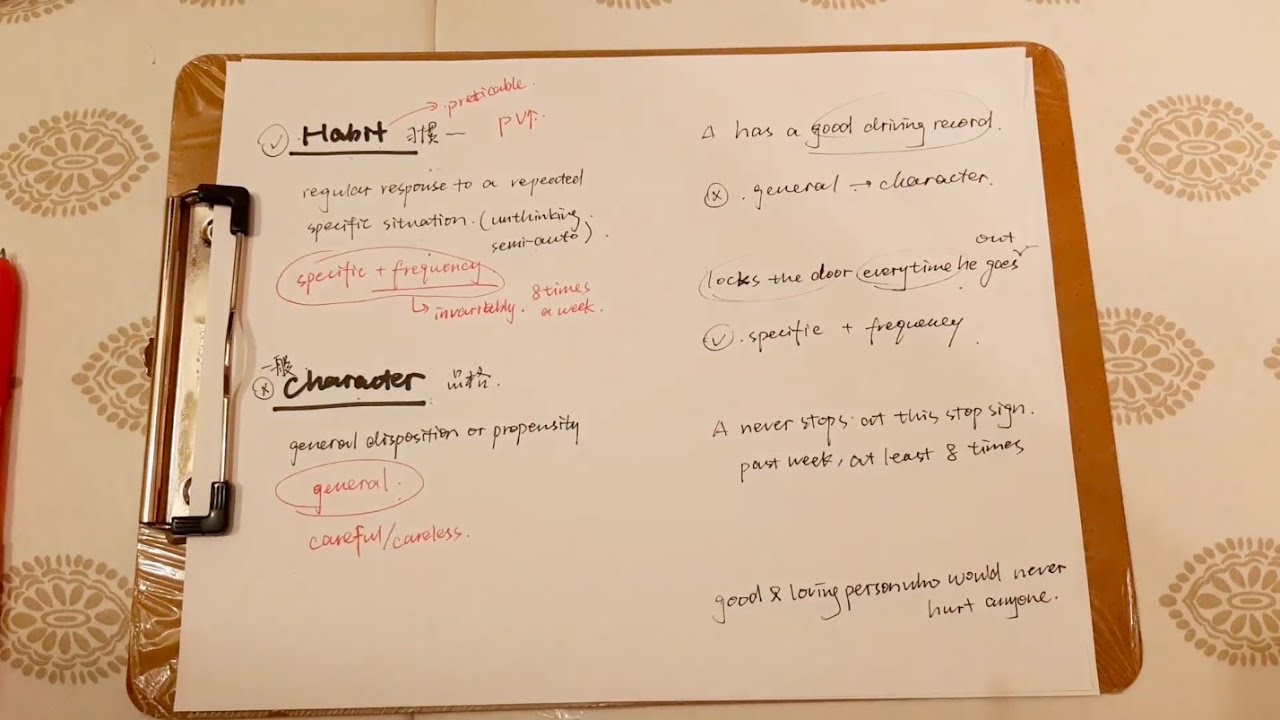 preticable.
✓ Habit 习惯 — PV↑.
regular response to a repeated
specific situation. (unthinking.
semi-auto).
specific + frequency
↳ invariably. 8 times
a week.
一般
ⓧ character 品格.
general disposition or propensity
general.
careful/careless.
A has a good driving record.
ⓧ. general → character.
out
locks the door everytime he goes
✓. specific + frequency.
A never stops at this stop sign.
past week, at least 8 times
good & loving person who would never
hurt anyone.